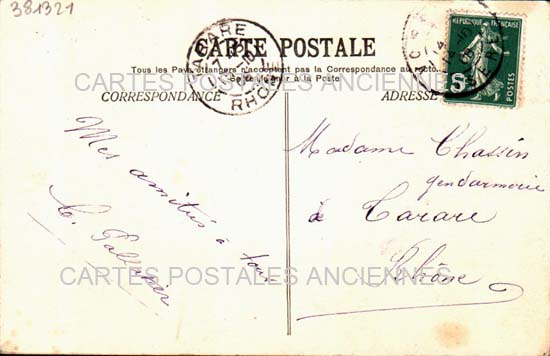 381321
CARTE POSTALE
Tous les Pays étrangers n'acceptent pas la Correspondance au recto
Se renseigner à la Poste
CORRESPONDANCE
ADRESSE
TARARE
RHONE
REPUBLIQUE FRANÇAISE
5
POSTES
Mes amitiés à tous
Madame Chassin
gendarmerie
à Tarare
Rhône
CARTES POSTALES ANCIENNES
CARTES POSTALES ANCIENNES